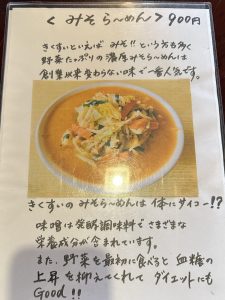 ＜みそら〜めん＞900円
きくすいといえば みそ!! という方も多く
野菜たっぷりの濃厚みそら〜めんは
創業以来変わらない味で一番人気です。
きくすいのみそら〜めんは体にダイコー!?
味噌は発酵調味料でさまざまな
栄養成分が含まれています。
また、野菜を最初に食べると血糖の
上昇を抑えてくれて ダイエットにも
Good!!